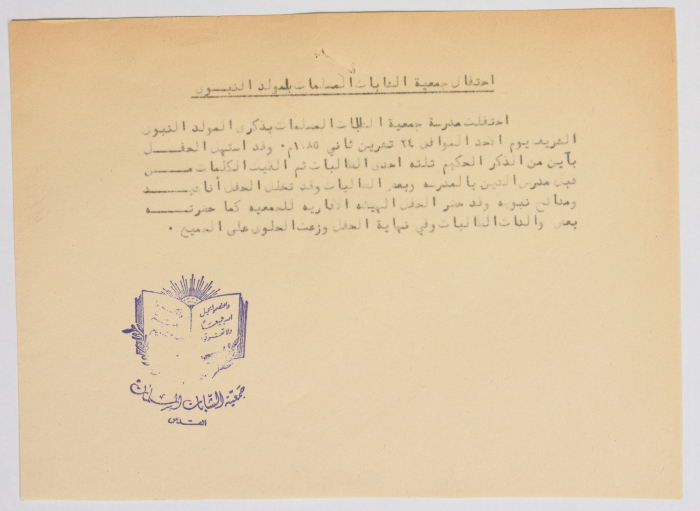 احتفال جمعية الشابات المسلمات بالمولد النبوى
احتفلت مدرسة جمعية الشابات المسلمات بذكرى المولد النبوى
الشريف يوم الاحد الموافق ٢٤ تشرين ثاني ١٩٨٥م٠ وقد استهل الحفل
بآين من الذكر الحكيم تلته احدى الطالبات ثم القيت الكلمات من
قبل مدرس الدين بالمدرسه وبعض الطالبات وقد تخلل الحفل أناشيد
ومدائح نبويه وقد حضر الحفل الهيئه الاداريه للجمعيه كما حضرته
بعض والدات الطالبات وفي نهاية الحفل وزعت الحلوى على الجميع ٠
واعتصموا بحبل
الله جميعا
ولا تفرقوا
جمعية الشابات المسلمات
القدس